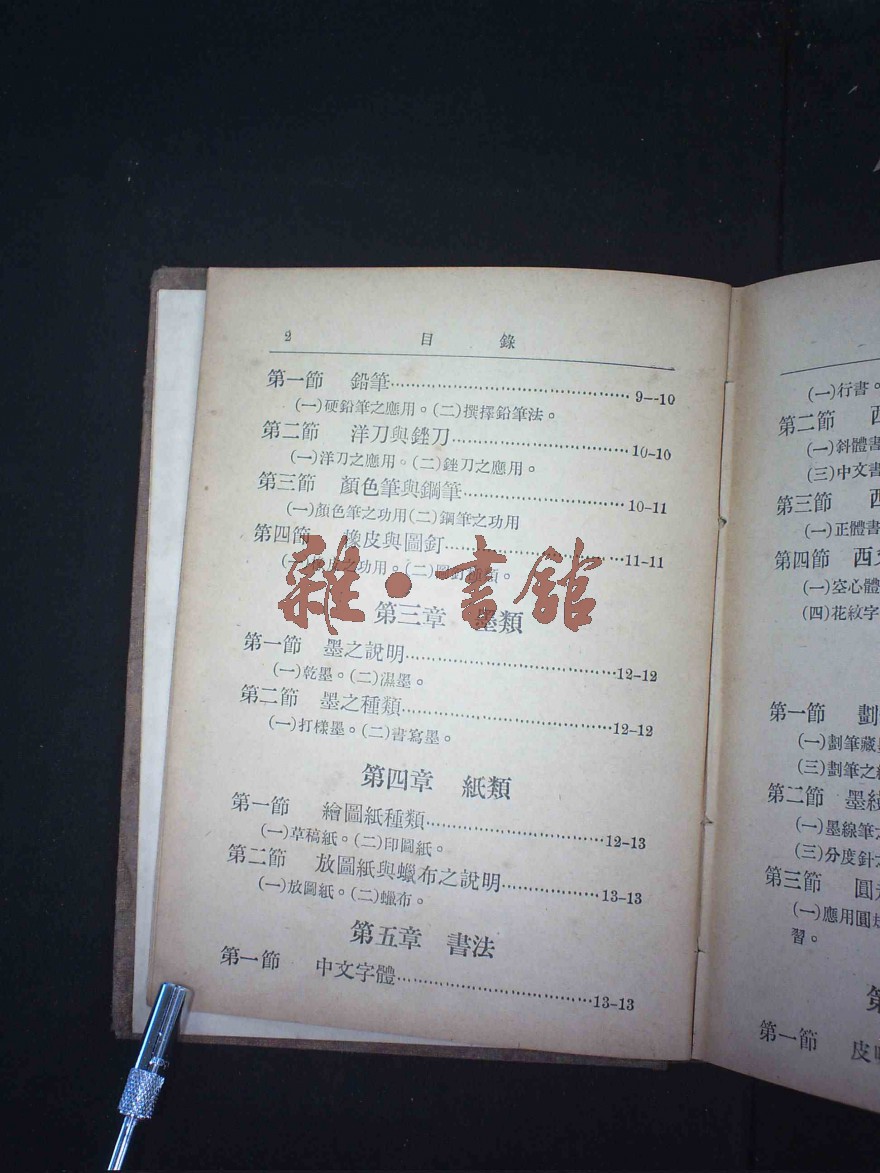 2 目錄
第一節 鉛筆……………………………9--10
(一)硬鉛筆之應用。(二)撰擇鉛筆法。
第二節 洋刀與銼刀……………………10-10
(一)洋刀之應用。(二)銼刀之應用。
第三節 顏色筆與鋼筆…………………10-11
(一)顏色筆之功用(二)鋼筆之功用
第四節 橡皮與圖釘……………………11-11
(一)橡皮之功用。(二)圖釘
雜·書館
第三章 墨類
第一節 墨之說明………………………12-12
(一)乾墨。(二)濕墨。
第二節 墨之種類………………………12-12
(一)打樣墨。(二)書寫墨。
第四章 紙類
第一節 繪圖紙種類……………………12-13
(一)草稿紙。(二)印圖紙。
第二節 放圖紙與蠟布之說明…………13-13
(一)放圖紙。(二)蠟布。
第五章 書法
第一節 中文字體………………………13-13
(一)行書。
第二節
(一)斜體書
(三)中文書
第三節 西
(一)正體書
第四節 西
(一)空心體
(四)花紋字
第一節 劃
(一)劃筆藏
(三)劃筆之
第二節 墨
(一)墨線筆之
(三)分度針
第三節 圓
(一)應用圓規
習。
第
第一節 皮